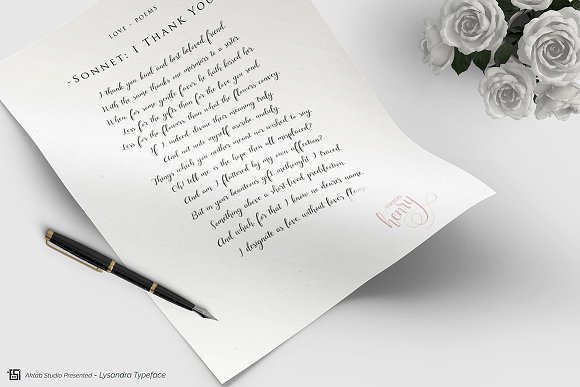 LOVE - POEMS
-SONNET: I THANK YOU
I thank you, kind and best beloved friend,
With the same thanks one murmurs to a sister,
When, for some gentle favor, he hath kissed her,
Less for the gifts than for the love you send,
Less for the flowers, than what the flowers convey,
If I, indeed, divine their meaning truly,
And not unto myself ascribe, unduly,
Things which you neither meant nor wished to say,
Oh! tell me, is the hope then all misplaced?
And am I flattered by my own affection?
But in your beauteous gift, methought I traced
Something above a short-lived predilection,
And which, for that I know no dearer name,
I designate as love, without love's flame
henry
Aktab Studio Presented - Lysandra Typeface